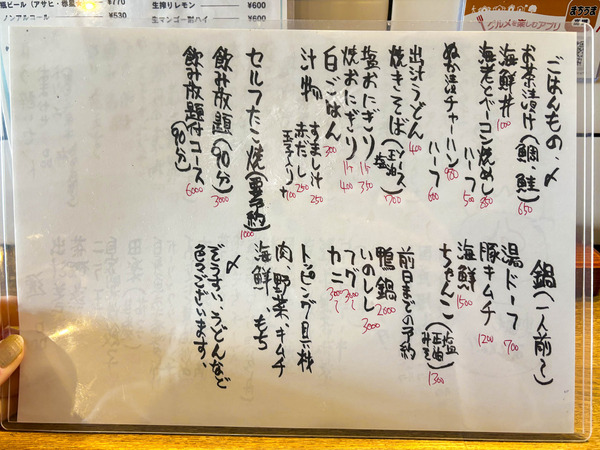 瓶ビール(アサヒ・
¥770
ノンアルコール
¥530
生搾りレモン
¥600
生マンゴー酎ハイ
¥600
グルメを楽しむアプリ
まちうま
ごはんもの、〆
お茶漬け(鯛、鮭) 650
海鮮丼 1000
海老とベーコン焼めし 850
ハーフ 500
ぬか漬チャーハン 950
ハーフ 600
出汁うどん 400
焼きそば(ソース 正油 塩) 700
塩おにぎり 1ケ 350
焼おにぎり 1ケ 400
白ごはん 300
汁物 すまし汁 250
赤だし 250
玉子入り
セルフたこ焼(要予約) 1000
飲み放題(90分) 3000
飲み放題付コース(90分) 6000
鍋(一人前〜)
湯ドーフ 700
豚キムチ 1200
海鮮 1500
ちゃんこ(塩 正油 みそ) 1300
前日までの予約
鴨鍋 2000
いのしし 3000
フグ 3000〜
カニ 3000〜
トッピング具材
肉、野菜、キムチ
海鮮、もち
〆
ぞうすい、うどんなど
色々ございます。